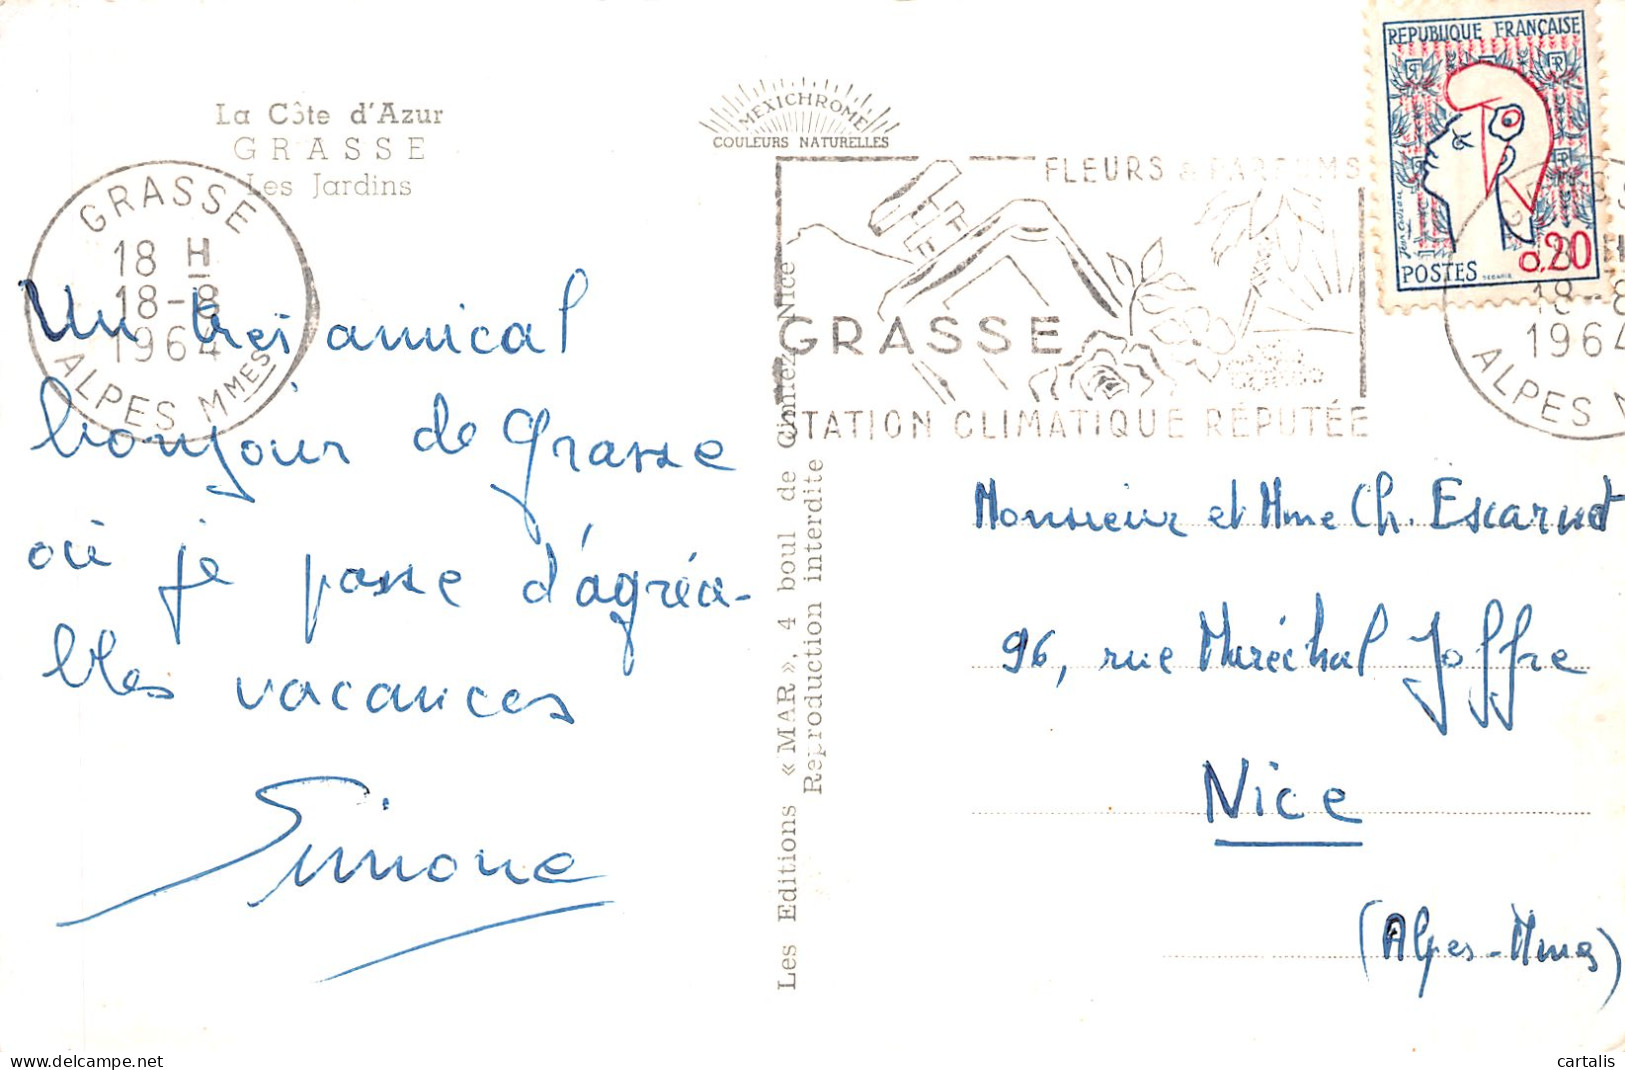 La Côte d'Azur
GRASSE
Les Jardins
MEXICHROME
COULEURS NATURELLES
GRASSE
18 H
18-8
1964
ALPES MMES
Un très amical
bonjour de Grasse
où je passe d'agréa-
bles vacances
Simone
Les Editions «MAR», 4 boul de Cimiez Nice
Reproduction interdite
FLEURS & PARFUMS
GRASSE
STATION CLIMATIQUE RÉPUTÉE
REPUBLIQUE FRANÇAISE
0,20
POSTES
18-8
1964
ALPES M
Monsieur et Mme Ch. Escarnot
96, rue Maréchal Joffre
Nice
(Alpes-Mmes)
cartalis